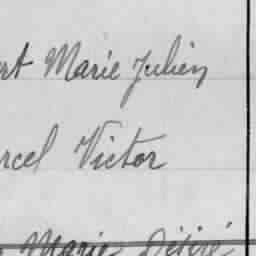 rt Marie Julien
rcel Victor
Marie Désiré